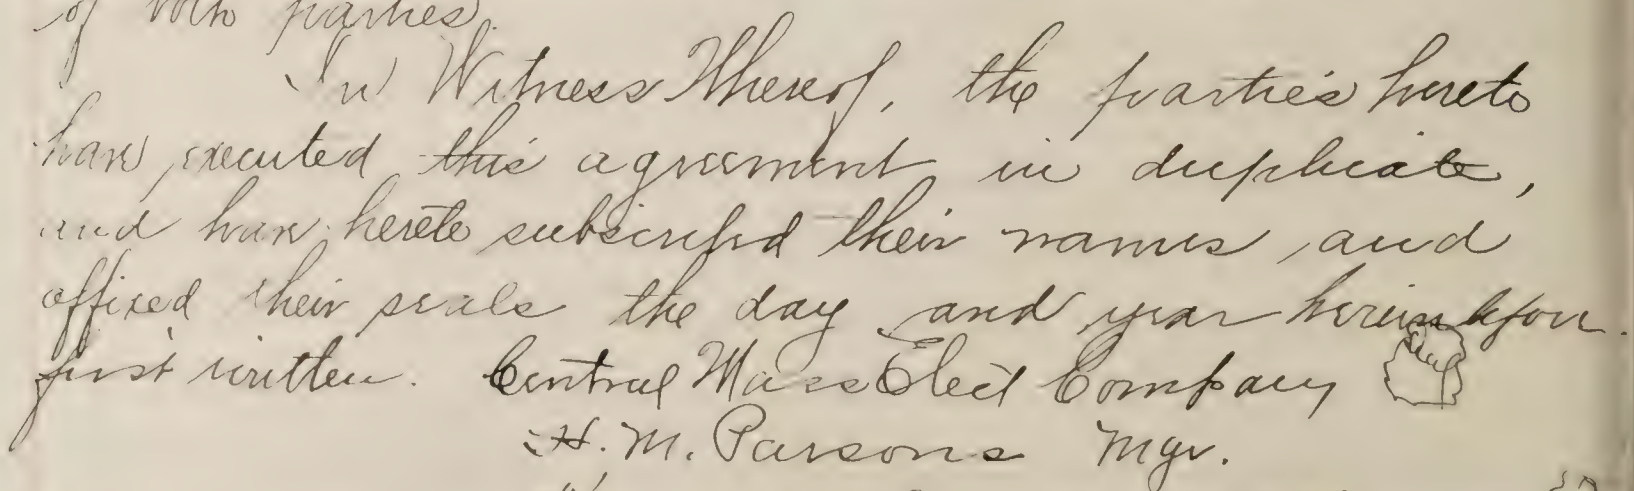 of both parties.
In Witness Whereof, the parties hereto
have executed this agreement in duplicate,
and have hereto subscribed their names and
affixed their seals the day and year hereinbefore
first written. Central Mass Elect Company Seal
H. M. Parsons Mgr.